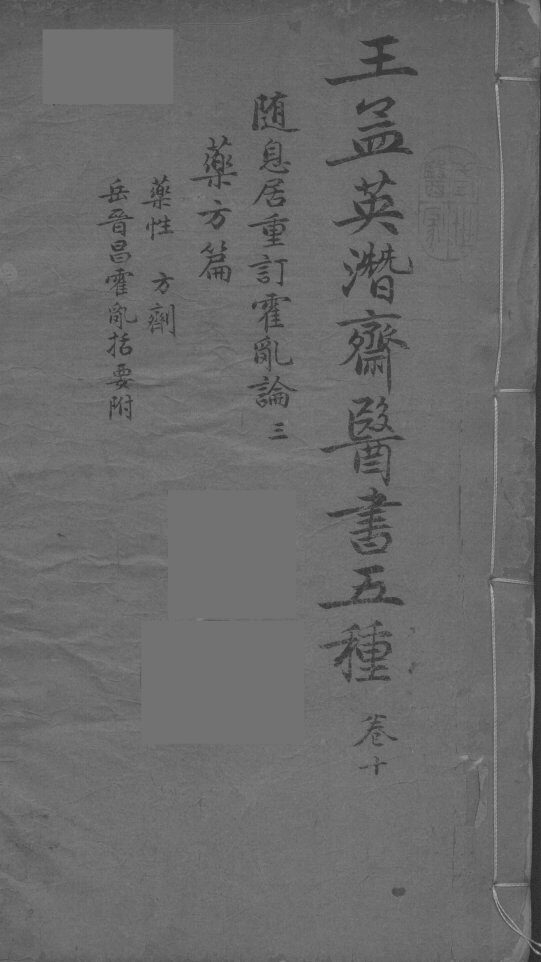 王孟英潛齋醫書五種 卷十
随息居重訂霍亂論 三
藥方篇
藥性 方劑
岳晉昌霍亂括要附